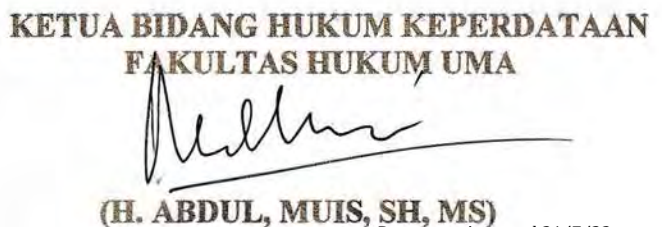 KETUA BIDANG HUKUM KEPERDATAAN
FAKULTAS HUKUM UMA
(H. ABDUL, MUIS, SH, MS)